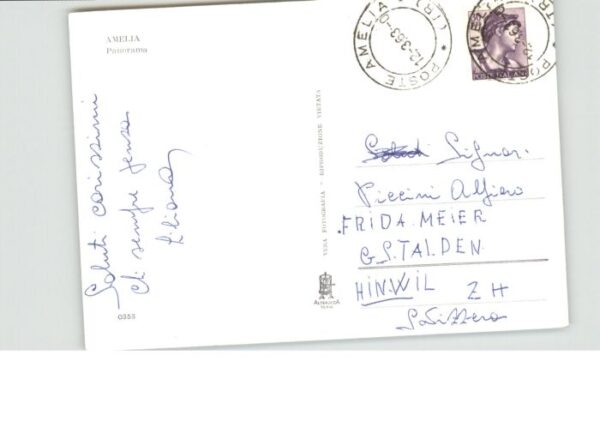 AMELIA
Panorama
Saluti carissimi
ti sempre penso
Liliana
0353
VERA FOTOGRAFIA - RIPRODUZIONE VIETATA
ALTEROCCA
TERNI
POSTE AMELIA (TR)
12.3.63
POSTE ITALIANE
Signor.
Piccini Alfiero
FRIDA. MEIER
G.S.TALDEN
HINWIL ZH
Svizzera